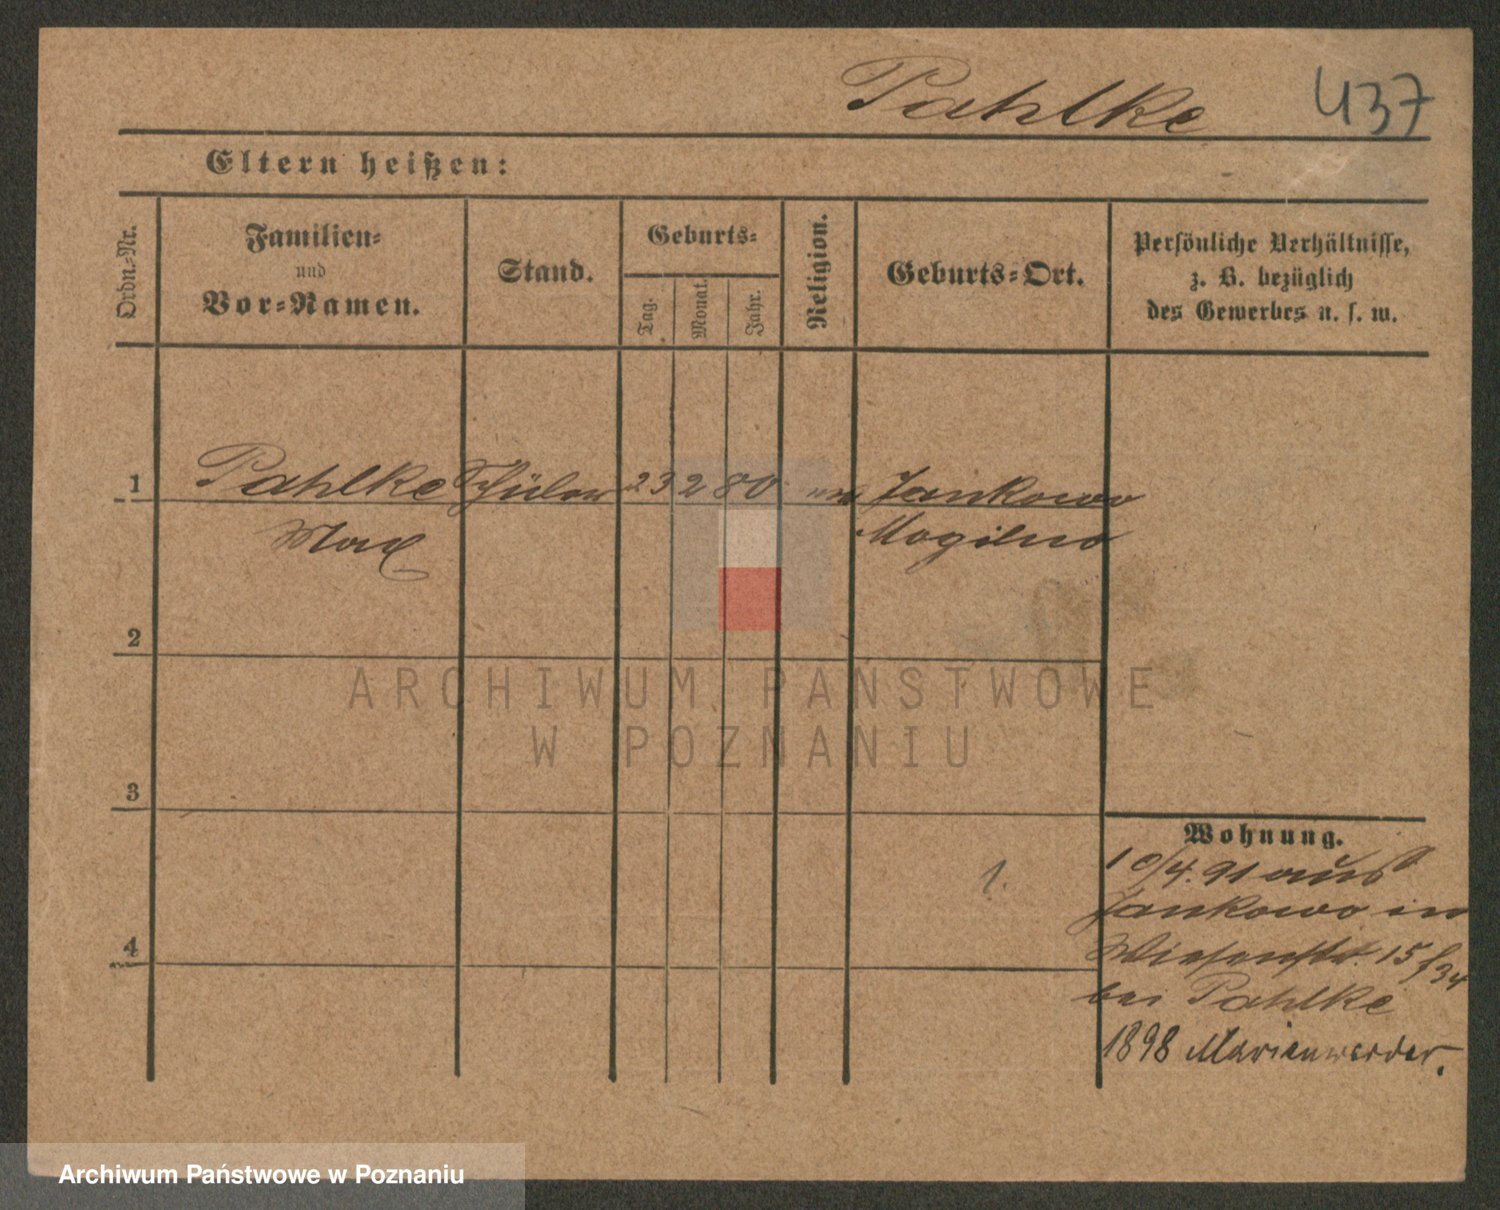 Pahlke 437
Eltern heißen:
Ordn.-Nr.
Familien-
und
Vor-Namen.
Stand.
Geburts-
Tag.
Monat.
Jahr.
Religion.
Geburts-Ort.
Persönliche Verhältnisse,
z. B. bezüglich
des Gewerbes u. s. w.
1 Pahlke Schüler 23 2 80 Jankowo
Max Mogilno
2
ARCHIWUM PAŃSTWOWE
W POZNANIU
3
Wohnung.
10/4.91 aus
Jankowo in
1.
4
Wiesenstr. 15
bei Pahlke
1898 Marienwerder.
Archiwum Państwowe w Poznaniu